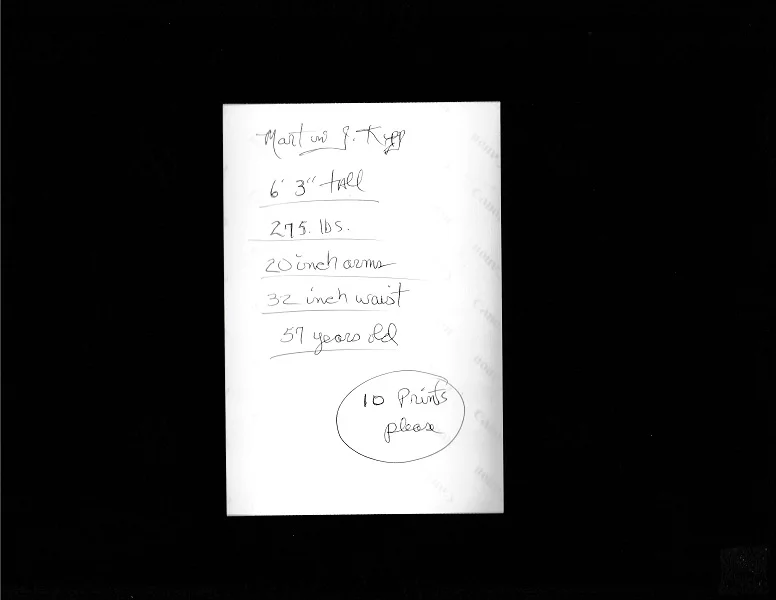 Martin J. Kipp
6' 3" tall
275. lbs.
20 inch arms
32 inch waist
57 years old
10 Prints
please